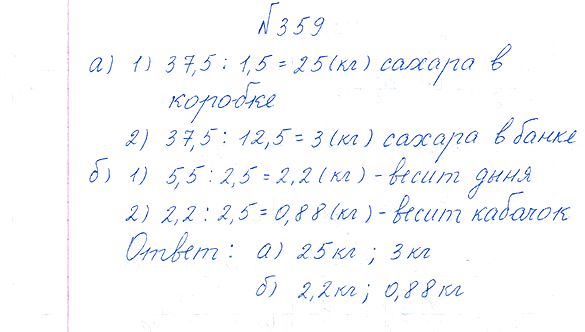 №359
а) 1) 37,5 : 1,5 = 25 (кг) сахара в
коробке
2) 37,5 : 12,5 = 3 (кг) сахара в банке
б) 1) 5,5 : 2,5 = 2,2 (кг) - весит дыня
2) 2,2 : 2,5 = 0,88 (кг) - весит кабачок
Ответ: а) 25 кг ; 3 кг
б) 2,2 кг ; 0,88 кг